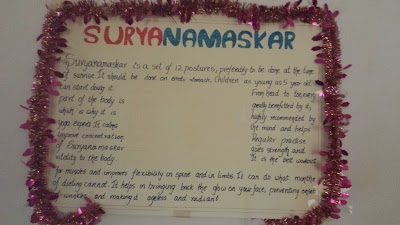 SURYANAMASKAR
Suryanamaskar is a set of 12 postures, preferably to be done at the time
of sunrise. It should be done on empty stomach. Children as young as 5 year old
can start doing it. From head to toe, every
part of the body is greatly benefitted by it,
which is why it is highly recommended by
yoga experts. It calms the mind and helps
improve concentration. Regular practise
of Suryanamaskar gives strength and
vitality to the body. It is the best workout
for muscles and improves flexibility in spine and in limbs. It can do what months
of dieting cannot. It helps in bringing back the glow on your face, preventing onset
wrinkles and making it ageless and radiant.